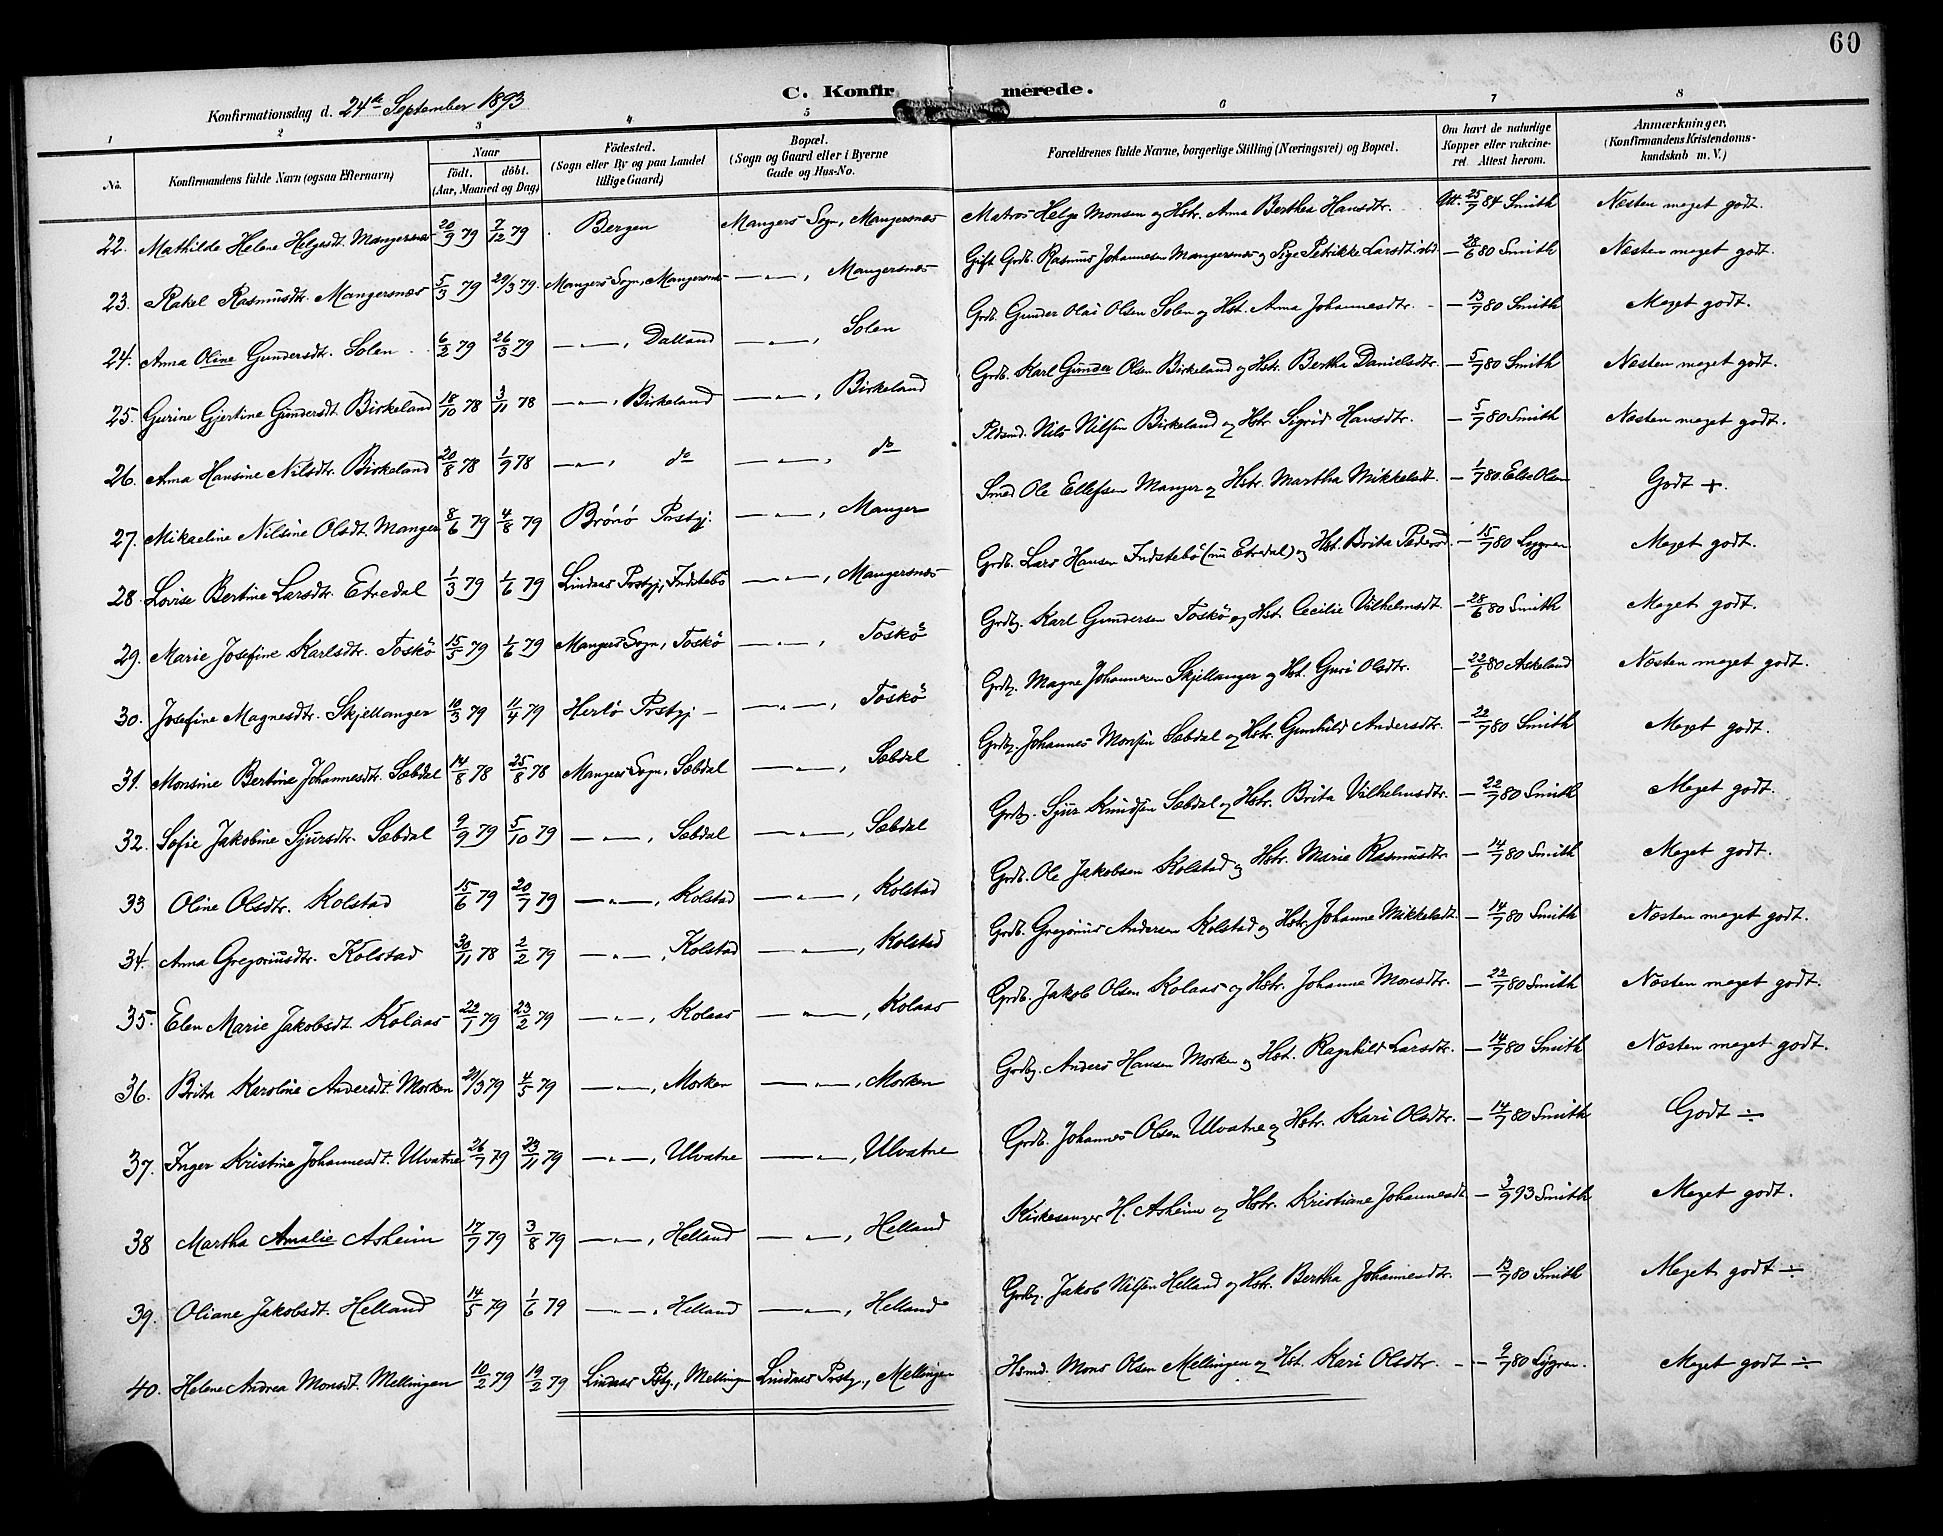 60
C. Konfirmerede.
Konfirmationsdag d. 24de September 1893
1 2 3 4 5 6 7 8
No. Konfirmandens fulde Navn (ogsaa Efternavn) Naar født. døbt. (Aar, Maaned og Dag) Fødested. (Sogn eller By og paa Landet tillige Gaard) Bopæl. (Sogn og Gaard eller i Byerne Gade og Hus-No. Forældrenes fulde Navne, borgerlige Stilling (Næringsvei) og Bopæl. Om havt de naturlige Kopper eller vakcineret. Attest herom. Anmærkninger. (Konfirmandens Kristendomskundskab m. V.)
22. Mathilde Helene Helgesdt. Mangersnæs 20/9 79 7/12 79 Bergen Mangers Sogn, Mangersnæs Matros Helge Monsen og Hstr. Anna Berthea Hansdtr. Att. 25/7 84 Smith Næsten meget godt.
23. Rakel Rasmusdtr. Mangersnæs 5/3 79 29/3 79. Mangers Sogn, Mangersnæs —„—, Mangersnæs Gift Grdb. Rasmus Johannesen Mangersnæs og Pige Petrikke Larsdt. ibd — 28/6 80 Smith Næsten meget godt.
24. Anna Oline Gundersdt. Solen 6/2 79 26/3 79 —„—, Dalland —„—, Solen Grdb. Gunder Olai Olsen Solen og Hst. Anna Johannesdtr. — 13/7 80 Smith Meget godt.
25. Gurine Gjertine Gundersdt. Birkeland 18/10 78 3/11 78 —„—, Birkeland —„—, Birkeland Grdb. Karl Gunder Olsen Birkeland og Hstr. Bertha Danielsdtr. — 5/7 80 Smith Næsten meget godt.
26. Anna Hansine Nilsdtr. Birkeland 20/8 78 1/9 78 —„—, do —„—, do Pldsmd. Nils Nilsen Birkeland og Hstr. Sigrid Hansdtr. — 5/7 80 Smith Næsten meget godt.
27. Mikaeline Nilsine Olsdt. Manger 8/6 79 4/8 79 Brönö Prstgj. —„—, Manger Smed Ole Ellefsen Manger og Hstr. Martha Mikkelsdt. — 1/7 80. Else Olsen Godt +.
28. Lovise Bertine Larsdtr. Etredal 1/3 79 1/6 79 Lindaas Prstgj, Indstebö —„—, Mangersnæs Grdb. Lars Hansen Indstebö (nu Etredal) og Hst. Brita Pedersd. — 15/7 80 Lygren Meget godt.
29. Marie Josefine Karlsdtr. Toskö 15/5 79 1/6 79 Mangers Sogn, Toskö —„—, Toskö Grdbg. Karl Gundersen Toskö og Hst. Cecilie Vilhelmsdt. — 28/6 80 Smith Meget godt.
30. Josefine Magnesdtr. Skjellanger 10/3 79 11/4 79 Herlö Prstgj — —„—, Toskö Grdbg. Magne Johannesen Skjellanger og Hst. Guri Olsdtr. — 22/6 80 Askeland Næsten meget godt.
31. Monsine Bertine Johannesdtr. Sæbdal 14/8 78 25/8 78 Mangers Sogn, Sæbdal —„—, Sæbdal Grdbg. Johannes Monsen Sæbdal og Hstr. Gunhild Andersdtr. — 22/7 80 Smith Meget godt.
32. Sofie Jakobine Sjursdtr. Sæbdal 9/9 79 5/10 79 —„—, Sæbdal —„—, Sæbdal Grdbg. Sjur Knudsen Sæbdal og Hstr. Brita Vilhelmsdtr. — 22/7 80 Smith Meget godt.
33 Oline Olsdtr. Kolstad 15/6 79 20/7 79 —„—, Kolstad —„—, Kolstad Grdb. Ole Jakobsen Kolstad og Hstr. Marie Rasmusdtr. — 14/7 80 Smith Meget godt.
34. Anna Gregoriusdtr. Kolstad 30/11 78 2/2 79 —„—, Kolstad —„—, Kolstad Grdb. Gregorius Andersen Kolstad og Hstr. Johanne Mikkelsdt. — 14/7 80 Smith Næsten meget godt.
35. Elen Marie Jakobsdt. Kolaas 22/1 79 23/2 79 —„—, Kolaas —„—, Kolaas Grdb. Jakob Olsen Kolaas og Hstr. Johanne Monsdtr. — 22/7 80 Smith Næsten meget godt.
36. Brita Karoline Andersdt. Morken 21/3 79 4/5 79 —„—, Morken —„—, Morken Grdbg. Anders Hansen Morken og Hst. Ragnhild Larsdtr. — 14/7 80 Smith Næsten meget godt.
37. Inger Kristine Johannesdt. Ulvatne 26/7 79 23/11 79 —„—, Ulvatne —„—, Ulvatne Grdb. Johannes Olsen Ulvatne og Hstr. Kari Olsdtr. — 14/7 80 Smith Godt ÷
38 Martha Amalie Asheim 17/7 79 3/8 79 —„—, Helland —„—, Helland Kirkesanger H. Asheim og Hstr. Kristiane Johannesdt. — 3/9 93 Smith Meget godt.
39. Oliane Jakobsdt. Helland 14/5 79 1/6 79 —„—, Helland —„—, Helland Grdbg. Jakob Nilsen Helland og Hstr. Bertha Johannesdtr. — 13/7 80 Smith Meget godt ÷
40. Helene Andrea Monsdt. Mellingen 10/2 79 19/2 79 Lindaas Pstgj., Mellingen Lindaas Prstgj., Mellingen Hsmd. Mons Olsen Mellingen og Hst. Kari Olsdtr. — 9/7 80 Lygren. Meget godt ÷